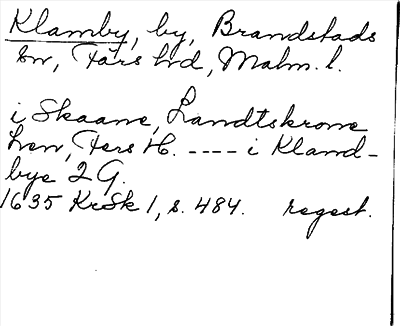 Klamby, by, Brandstads
sn, Färs hd, Malm. l.
i Skaane, Landtskrone
Len, Fers H. ---- i Kland-
bye 2 G.
1635 KrSk 1, s. 484. regest.